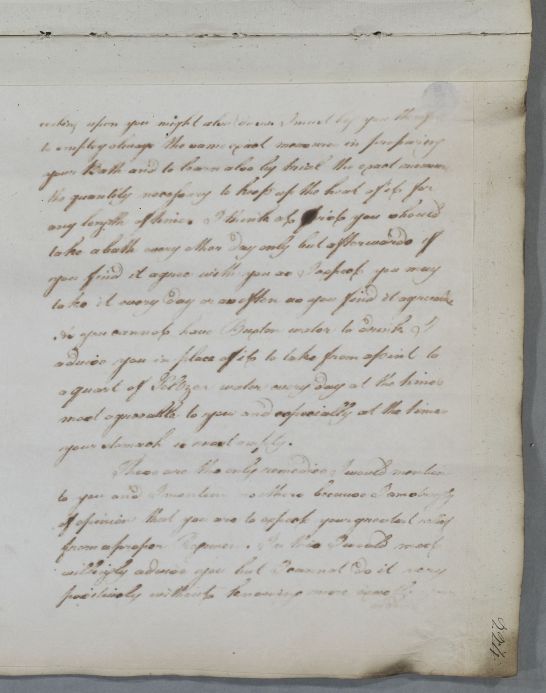 upon you might also I must beg you
to employ always the same exact measure in preparing
your Bath and to learn also by trial the exact measure
the quantity necessary to keep up the heat of it for
any length of time. I think at first you should
take a bath every other day only but afterwards if
you find it agree with you as I expect you may
take it every day or as often as you find it agreeable
As you cannot have Buxton water to drink I
advise you in place of it to take from a pint to
a quart of Seltzer water every day at the times
most agreeable to you and especially at the time
your stomach is most empty.
These are the only remedies I would mention
to you and I mention no others because I am strongly
of opinion that you are to expect your greatest relief
from a proper Regimen. In this I would most
willingly advise you but I cannot do it very
positively without knowing more
224